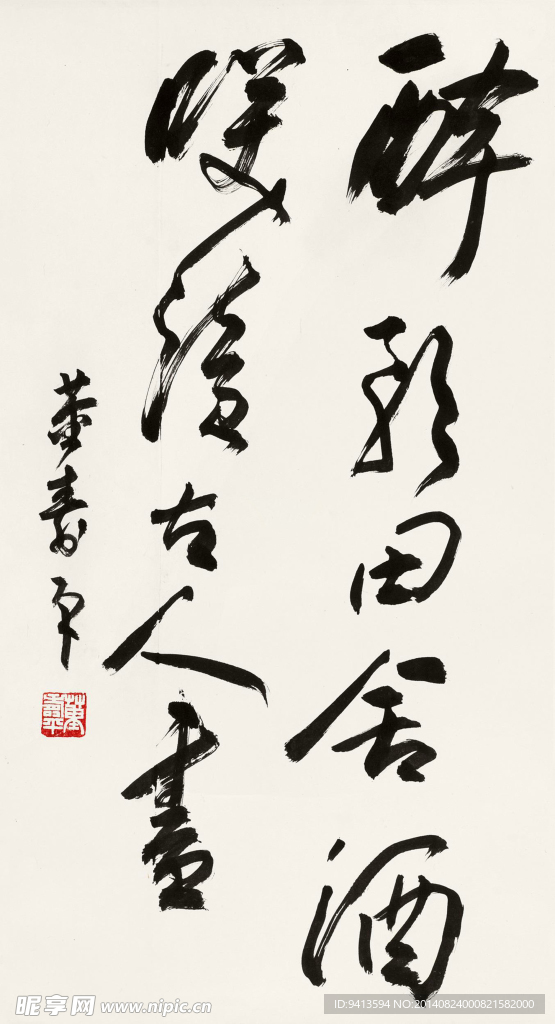 醉歌田舍酒
咲讀古人書
董壽平
董壽平
昵享网 www.nipic.cn
ID:9413594 NO:20140824000821582000